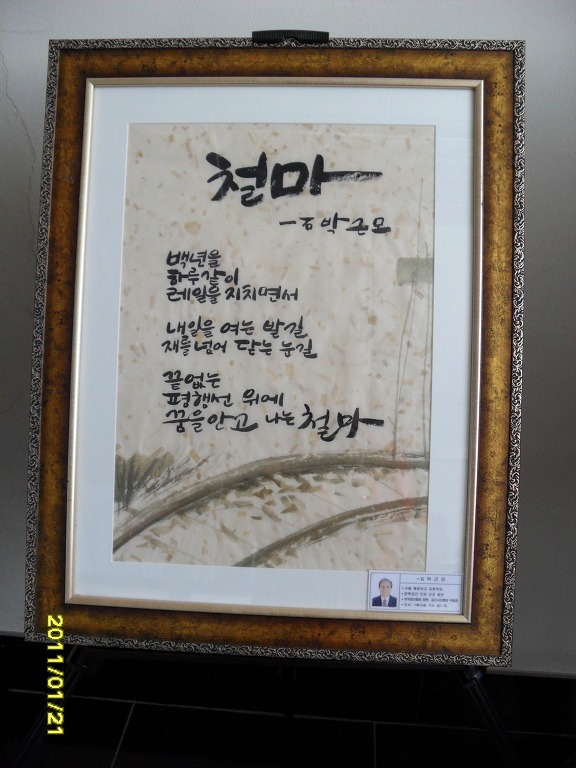 철마
一石 박근모
백년을
하루같이
레일을 지치면서
내일을 여는 발길
재를 넘어 닫는 눈길
끝없는
평행선 위에
꿈을 안고 나는 철마
박근모
2011/01/21